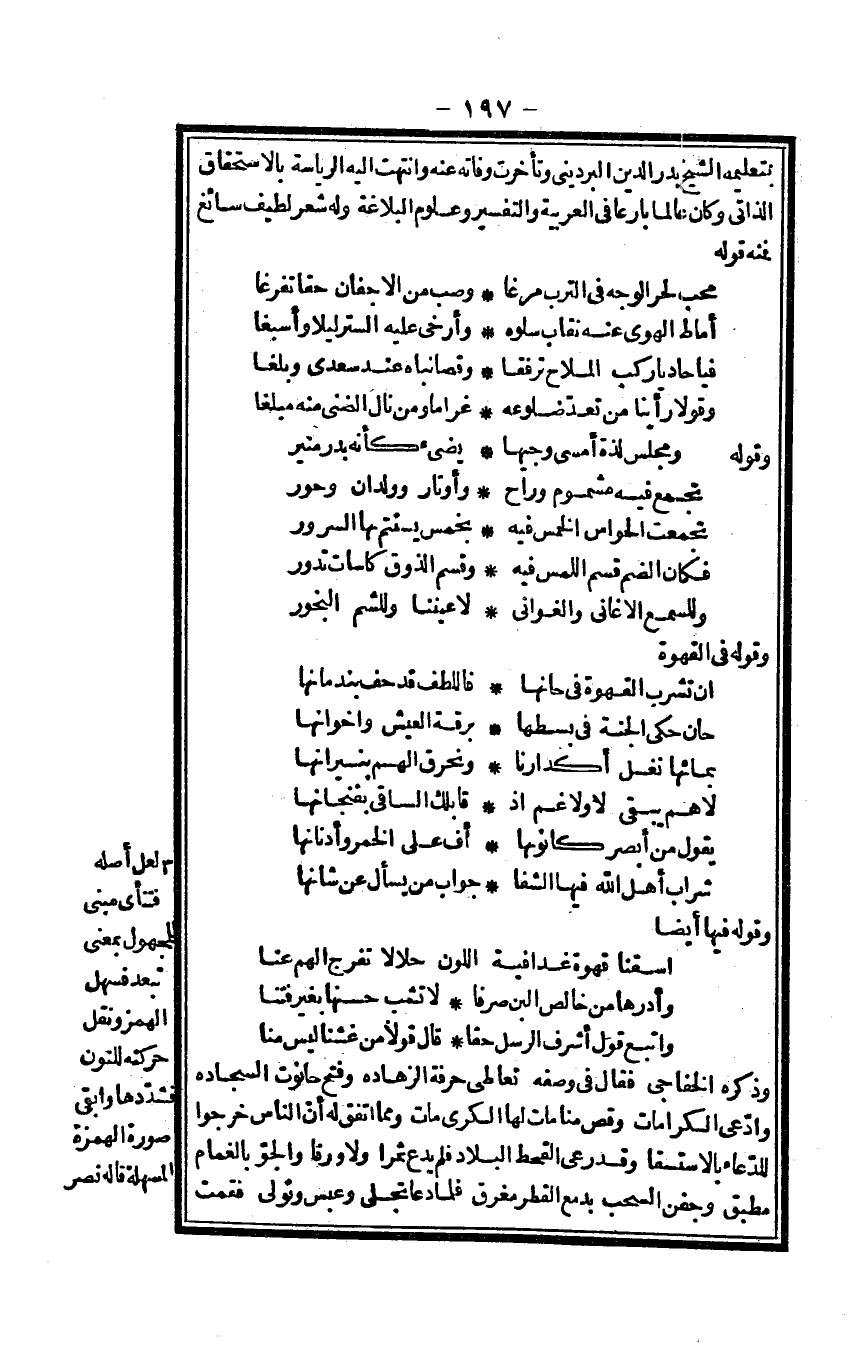 - ١٩٧ -
بتعليمه الشيخ بدر الدين البردينى وتأخرت وفاته عنه وانتهت اليه الرياسة بالاستحقاق
الذاتى وكان عالما بارعا فى العربية والتفسير وعلوم البلاغة وله شعر لطيف سائغ
فمنه قوله
محب لحر الوجه فى الترب مرغا * وصب من الاجفان حقا تفرغا
أماط الهوى عنه نقاب سلوه * وأرخى عليه الستر ليلا وأسبغا
فيا حاديا ركب الملاح ترفقا * وقصا نباه عند سعدى وبلغا
وقولا رأينا من تعد ضلوعه * غراما ومن نال الضنى منه مبلغا
وقوله ومجلس لذة أمسى وجيها * يضىء كأنه بدر منير
تجمع فيه مشموم وراح * وأوتار وولدان وحور
تجمعت الحواس الخمس فيه * بخمس يستتم بها السرور
فكان الضم قسم اللمس فيه * وقسم الذوق كاسات تدور
وللسمع الاغانى والغوانى * لاعيننا وللشم البخور
وقوله فى القهوة
ان تشرب القهوة فى حانها * فاللطف قد حف بندمانها
حان حكى الجنة فى بسطها * برقة العيش واخوانها
بمائها نغسل أكدارنا * ونحرق الهم بنيرانها
لا هم يبقى لا ولا غم اذ * قابلك الساقى بفنجانها
يقول من أبصر كانونها * أف على الخمر وأدنانها
شراب أهل الله فيها الشفا * جواب من يسأل عن شانها
وقوله فيها أيضا
اسقنا قهوة غدافية اللون حلالا تفرج الهم عنا
وأدرها من خالص البن صرفا * لا تشب حسنها بغير فتنا
واتبع قول أشرف الرسل حقا * قال قولا من غشنا ليس منا
وذكره الخفاجى فقال فى وصفه تعاطى حرفة الزهاده وفتح حانوت السجاده
وادّعى الكرامات وقص منامات لها الكرى مات ومما اتفق له أن الناس خرجوا
للدّعاء بالاستسقا وقد رعى القحط البلاد فلم يدع ثمرا ولا ورقا والجوّ بالغمام
مطبق وجفن السحب بدمع القطر مغرق فلما دعا تجلى وعبس وتولى فقمت
م لعل أصله
فتنأى مبنى
للمجهول بمعنى
تبعد فسهل
الهمز ونقل
حركته للنون
فشدّدها وابقى
صورة الهمزة
المسهلة قاله نصر